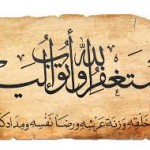 ستغفر الله وأتوب إليـ
خلقه وزنة عرشه ورضا نفسه ومداد كـ